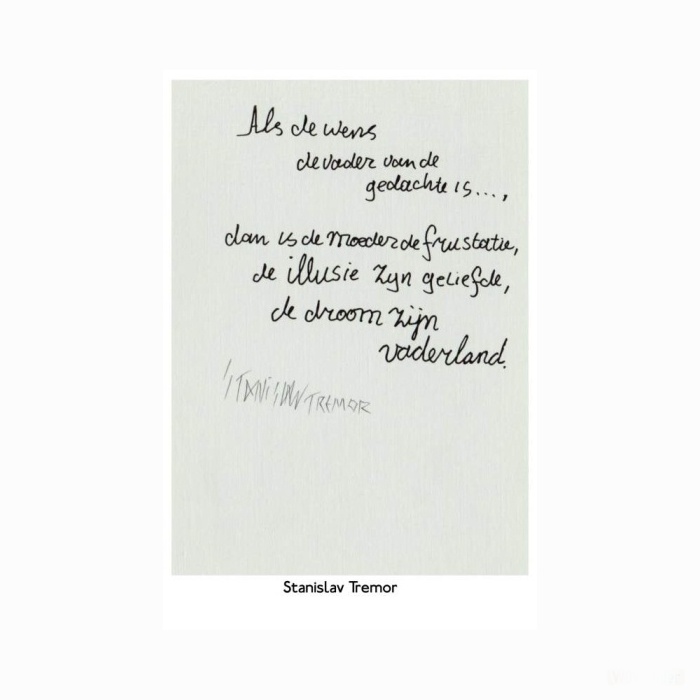 Als de wens
de vader van de
gedachte is...,
dan is de moeder de frustatie,
de illusie zijn geliefde,
de droom zijn
vaderland.
STANISLAV TREMOR
Stanislav Tremor